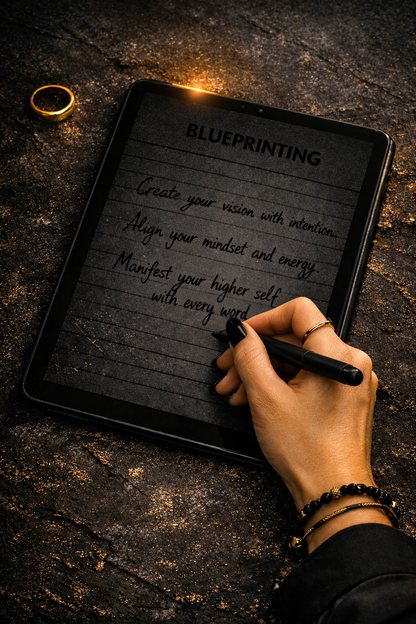 BLUEPRINTING
Create your vision with intention.
Align your mindset and energy.
Manifest your higher self
with every word